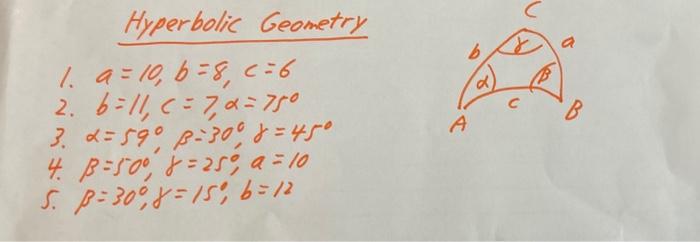 Hyperbolic Geometry
1. a=10, b=8, c=6
2. b=11, c=7, α=75°
3. α=59°, β=30°, γ=45°
4. β=50°, γ=25°, a=10
5. β=30°, γ=15°, b=12
C
b γ a
α β
A c B